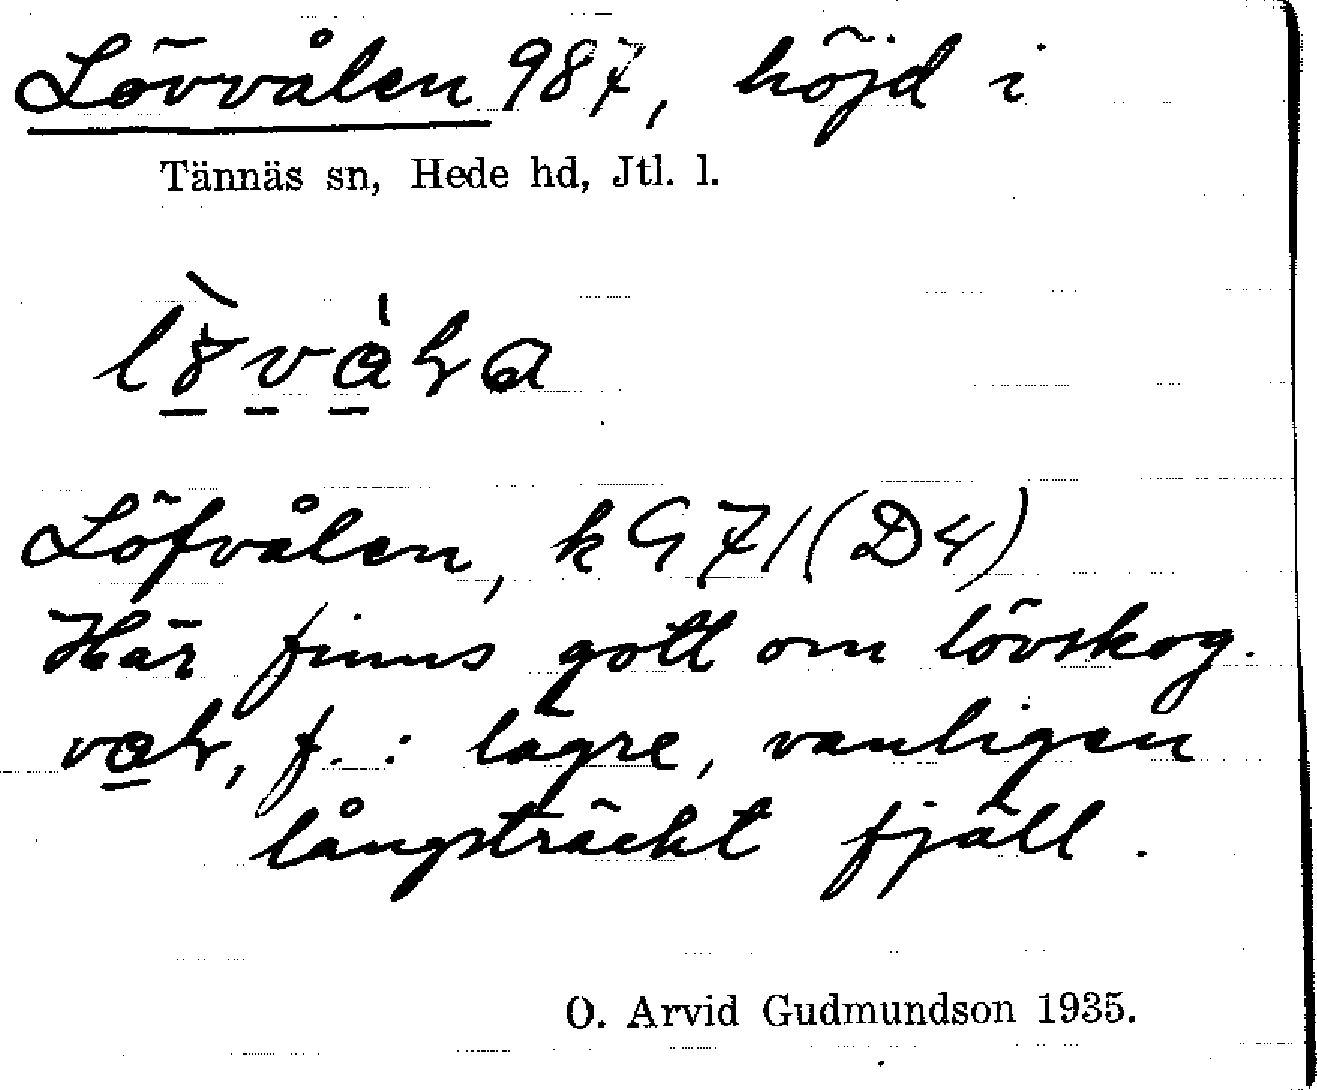 Lövvålen 987, höjd i
Tännäs sn, Hede hd, Jtl. l.
Löfvålen, k G 71 (D4)
Här finns gott om lövskog.
f.: lägre, vanligen
långsträckt fjäll.
O. Arvid Gudmundson 1935.